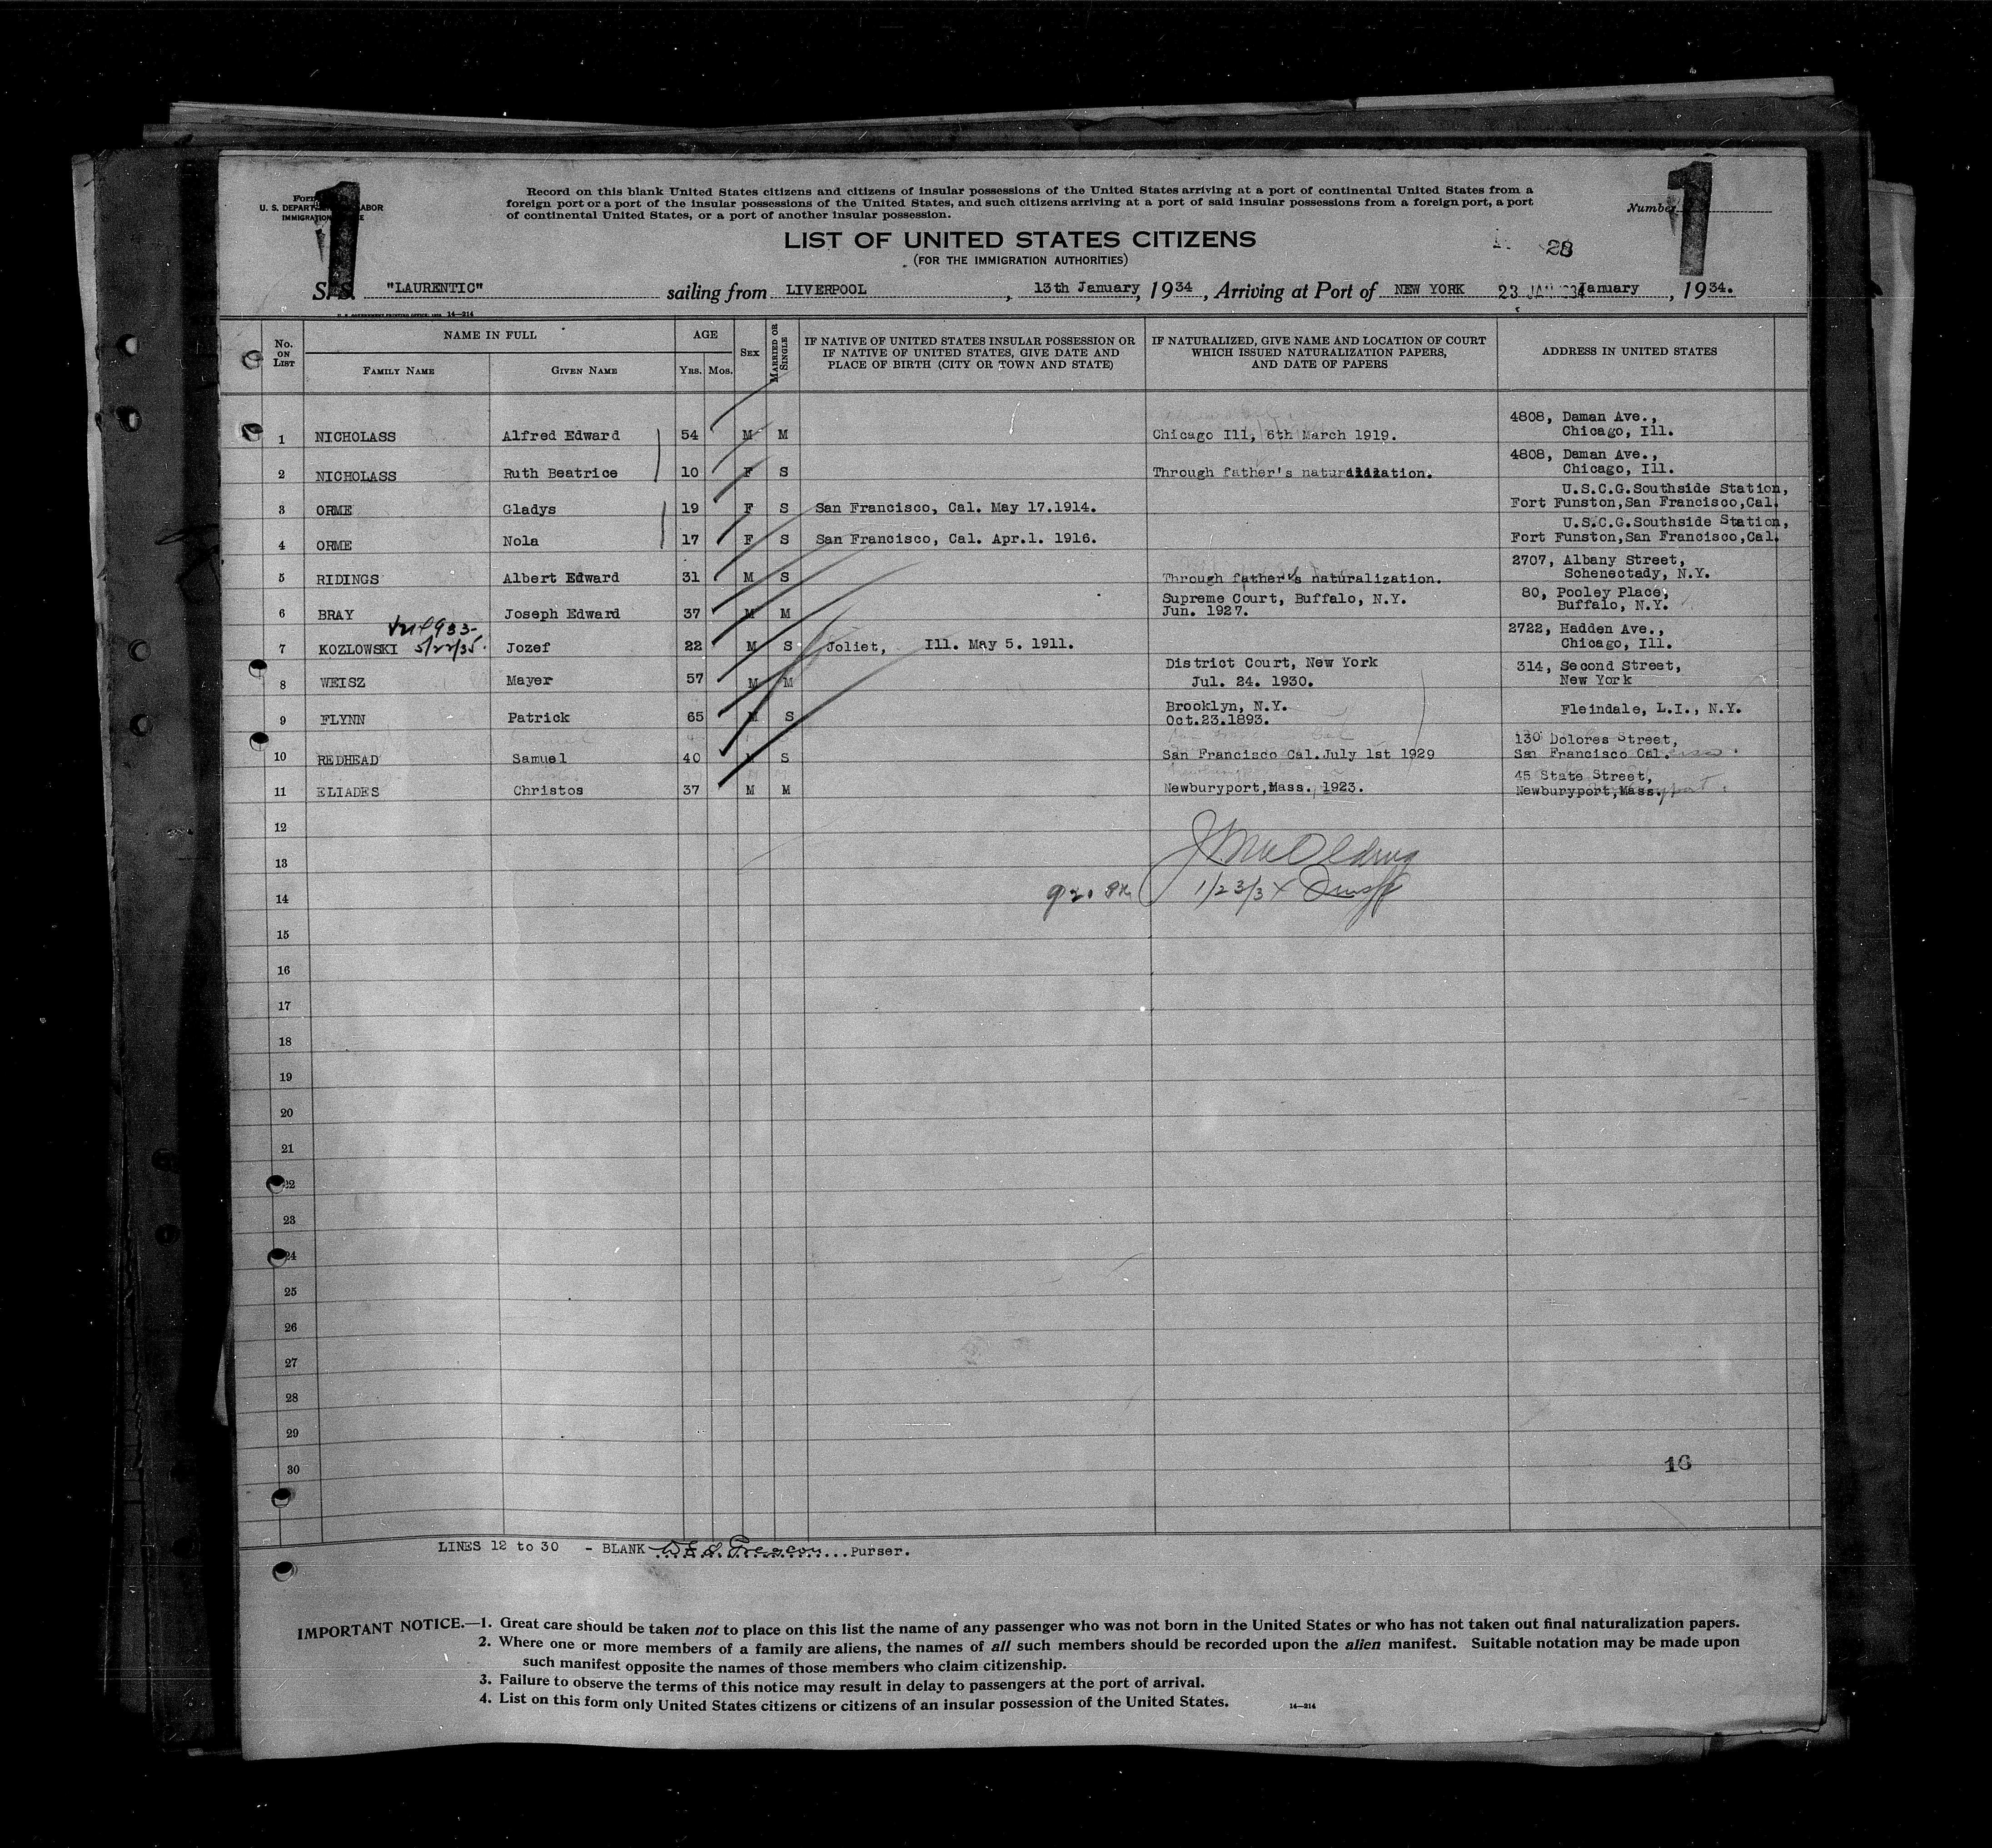 1
1
Form
U. S. DEPARTMENT OF LABOR
IMMIGRATION SERVICE
Record on this blank United States citizens and citizens of insular possessions of the United States arriving at a port of continental United States from a
foreign port or a port of the insular possessions of the United States, and such citizens arriving at a port of said insular possessions from a foreign port, a port
of continental United States, or a port of another insular possession.
Number
LIST OF UNITED STATES CITIZENS
28
(FOR THE IMMIGRATION AUTHORITIES)
S. S. "LAURENTIC" sailing from LIVERPOOL, 13th January, 1934, Arriving at Port of NEW YORK 23 JAN 1934 January, 1934.
U. S. GOVERNMENT PRINTING OFFICE 14—214
No. ON LIST
NAME IN FULL
FAMILY NAME
GIVEN NAME
AGE
YRS. MOS.
SEX
MARRIED OR SINGLE
IF NATIVE OF UNITED STATES INSULAR POSSESSION OR
IF NATIVE OF UNITED STATES, GIVE DATE AND
PLACE OF BIRTH (CITY OR TOWN AND STATE)
IF NATURALIZED, GIVE NAME AND LOCATION OF COURT
WHICH ISSUED NATURALIZATION PAPERS,
AND DATE OF PAPERS
ADDRESS IN UNITED STATES
1 NICHOLASS Alfred Edward 54 M M Chicago Ill, 6th March 1919. 4808, Daman Ave.,
Chicago, Ill.
2 NICHOLASS Ruth Beatrice 10 F S Through father's naturalization. 4808, Daman Ave.,
Chicago, Ill.
3 ORME Gladys 19 F S San Francisco, Cal. May 17.1914. U.S.C.G.Southside Station,
Fort Funston,San Francisco,Cal.
4 ORME Nola 17 F S San Francisco, Cal. Apr.1. 1916. U.S.C.G.Southside Station,
Fort Funston,San Francisco,Cal.
5 RIDINGS Albert Edward 31 M S Through father's naturalization. 2707, Albany Street,
Schenectady, N.Y.
6 BRAY Joseph Edward 37 M M Supreme Court, Buffalo, N.Y.
Jun. 1927.
80, Pooley Place,
Buffalo, N.Y.
5/22/35.
7 KOZLOWSKI Jozef 22 M S Joliet, Ill. May 5. 1911. 2722, Hadden Ave.,
Chicago, Ill.
8 WEISZ Mayer 57 M M District Court, New York
Jul. 24. 1930.
314, Second Street,
New York
9 FLYNN Patrick 65 M S Brooklyn, N.Y.
Oct.23.1893.
Fleindale, L.I., N.Y.
10 REDHEAD Samuel 40 M S San Francisco Cal.July 1st 1929 130 Dolores Street,
San Francisco Cal.
11 ELIADES Christos 37 M M Newburyport,Mass. 1923. 45 State Street,
Newburyport,Mass.
12
13
14
1/23/34
15
16
17
18
19
20
21
22
23
24
25
26
27
28
29
30
16
LINES 12 to 30 - BLANK Purser.
IMPORTANT NOTICE.—1. Great care should be taken not to place on this list the name of any passenger who was not born in the United States or who has not taken out final naturalization papers.
2. Where one or more members of a family are aliens, the names of all such members should be recorded upon the alien manifest. Suitable notation may be made upon
such manifest opposite the names of those members who claim citizenship.
3. Failure to observe the terms of this notice may result in delay to passengers at the port of arrival.
4. List on this form only United States citizens or citizens of an insular possession of the United States.
14—214